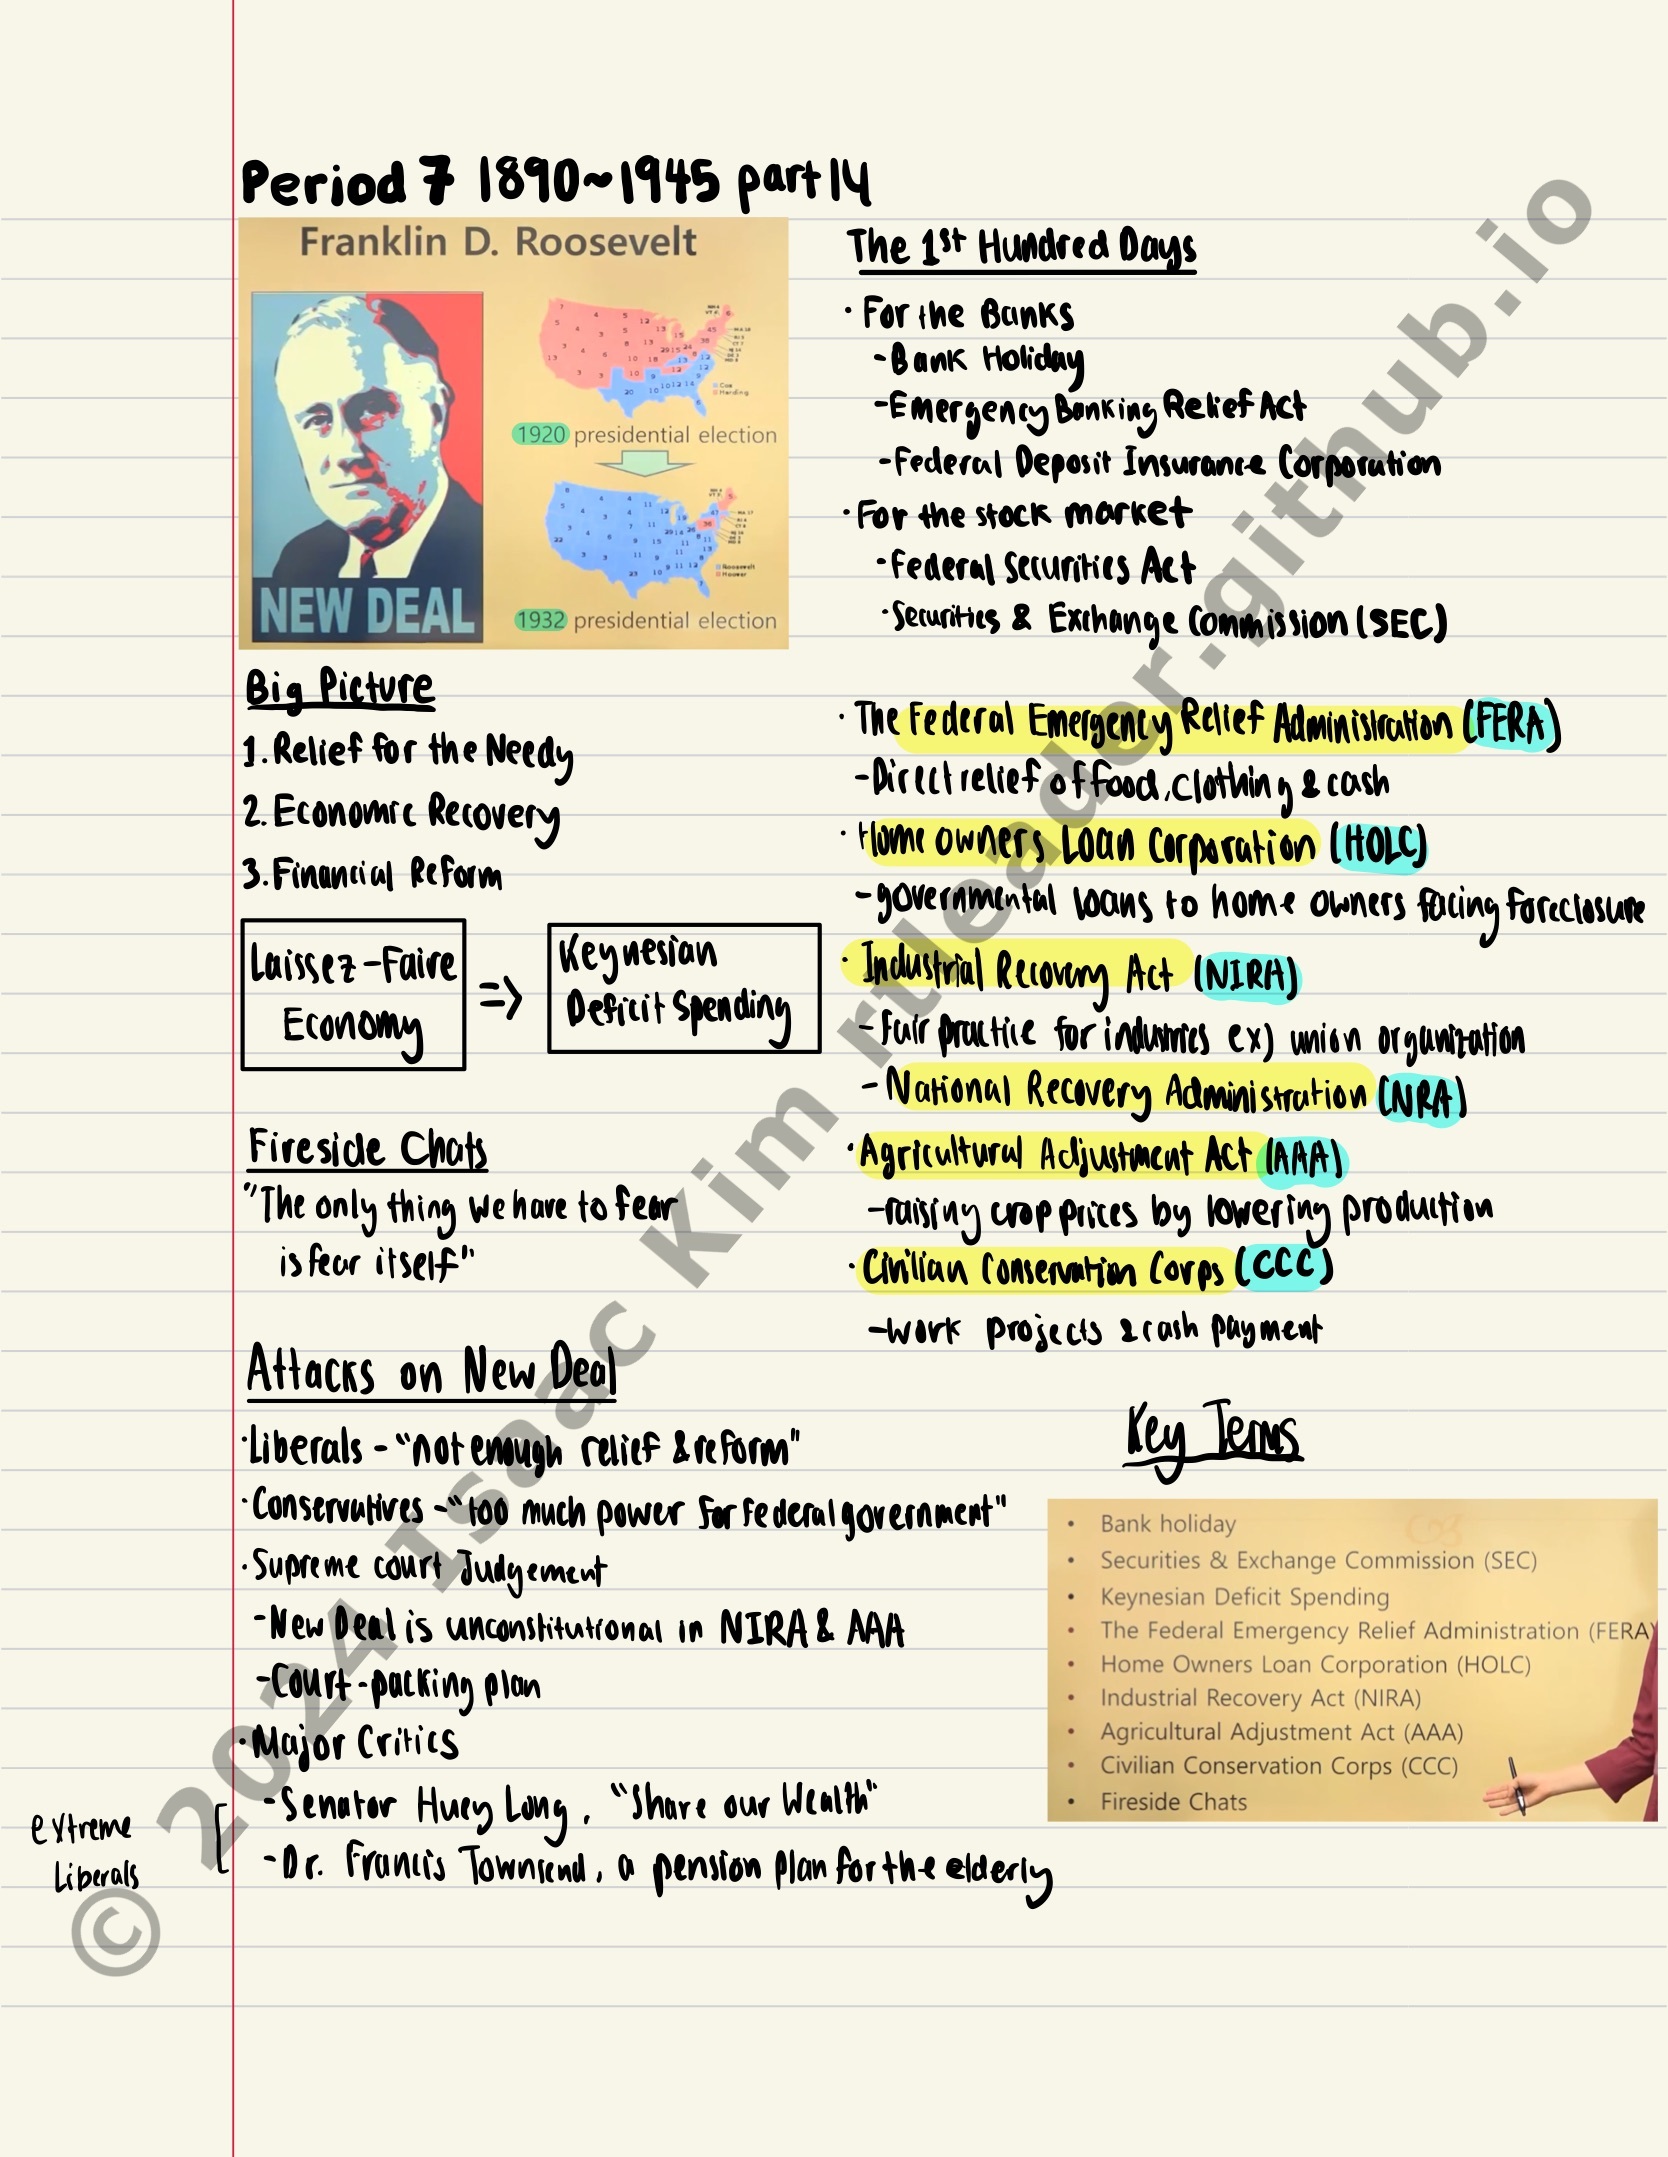 Period 7 1890~1945 part 14
Franklin D. Roosevelt
NEW DEAL
1920 presidential election
1932 presidential election
Big Picture
1. Relief for the Needy
2. Economic Recovery
3. Financial Reform
Laissez-Faire
Economy
=>
Keynesian
Deficit Spending
Fireside Chats
"The only thing we have to fear
is fear itself"
Attacks on New Deal
·Liberals - "not enough relief & reform"
·Conservatives - "too much power for federal government"
·Supreme court Judgement
-New Deal is unconstitutional in NIRA & AAA
-Court-packing plan
·Major Critics
-Senator Huey Long, "Share our Wealth"
-Dr. Francis Townsend, a pension plan for the elderly
extreme
Liberals
The 1st Hundred Days
· For the Banks
- Bank Holiday
-Emergency Banking Relief Act
-Federal Deposit Insurance Corporation
·For the stock market
-Federal Securities Act
·Securities & Exchange Commission (SEC)
· The Federal Emergency Relief Administration (FERA)
-Direct relief of food, clothing & cash
· Home owners Loan Corporation (HOLC)
-governmental loans to home owners facing foreclosure
· Industrial Recovery Act (NIRA)
-Fair practice for industries ex) union organization
- National Recovery Administration (NRA)
·Agricultural Adjustment Act (AAA)
-raising crop prices by lowering production
·Civilian Conservation Corps (CCC)
-work projects & cash payment
Key Terms
• Bank holiday
• Securities & Exchange Commission (SEC)
• Keynesian Deficit Spending
• The Federal Emergency Relief Administration (FERA)
• Home Owners Loan Corporation (HOLC)
• Industrial Recovery Act (NIRA)
• Agricultural Adjustment Act (AAA)
• Civilian Conservation Corps (CCC)
• Fireside Chats
© 2024 Isaac Kim rtleader.github.io